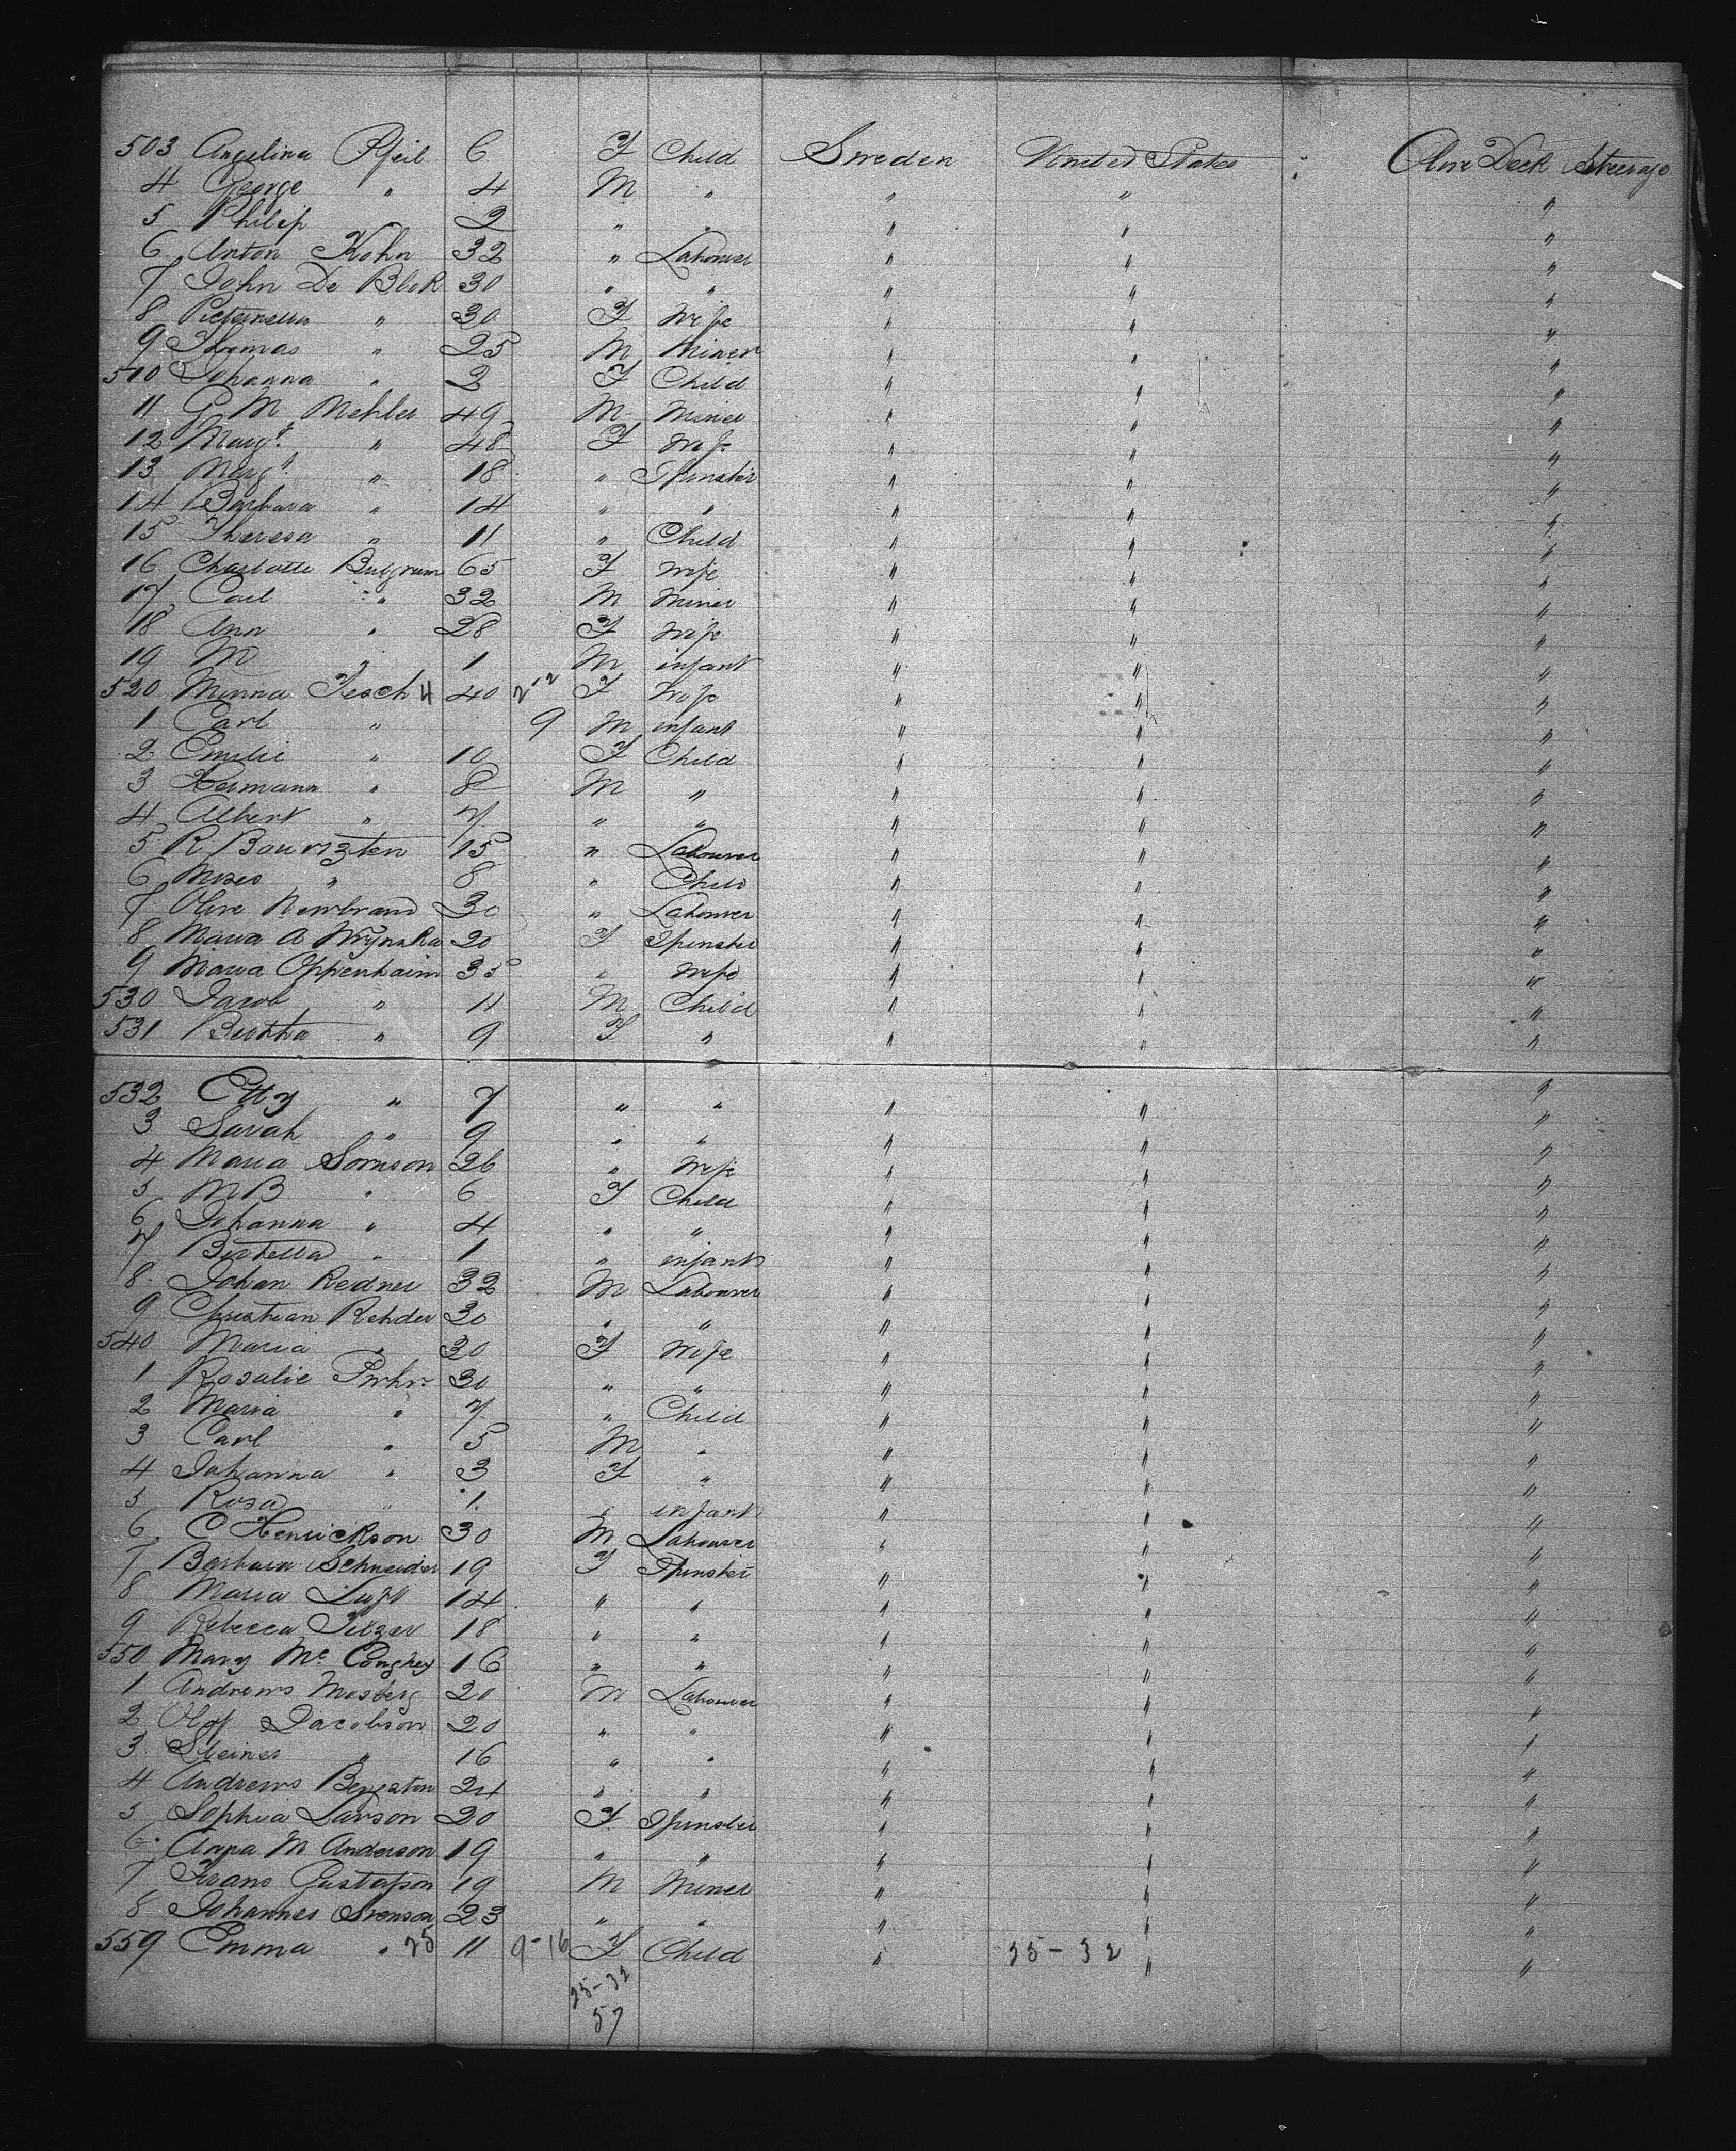 503 Angelina Pfeil 6 F Child Sweden United States Olive Deck Steerage
4 George " 4 M " " " "
5 Philip 2 " " " " "
6 Anton Kohn 32 " Labourer " " "
7 John De Blok 30 " " " " "
8 " 30 F Wife " " "
9 Thomas " 25 M Miner " " "
510 Johanna " 2 F Child " " "
11 G M Mehler 49 M Miner " " "
12 Margt " 48 F Wife " " "
13 Margt " 18 " Spinster " " "
14 Barbara " 14 " " " " "
15 Theresa " 11 " Child " " "
16 Charlotte Bulgrum 65 F Wife " " "
17 Carl " 32 M Miner " " "
18 Ann " 28 F Wife " " "
19 M " 1 M infant " " "
520 Minna Tesch 4 40 F Wife " " "
1 Carl " 9 M infant " " "
2 Emilie " 10 F Child " " "
3 Hermann " 8 M " " " "
4 Albert " 7 " " " " "
5 R 15 " Labourer " " "
6 Moses " 8 " Child " " "
7 Olive Newbrand 30 " Labourer " " "
8 Maria A 20 F Spinster " " "
9 Maria Oppenhaim 35 " Wife " " "
530 Jacob " 11 M Child " " "
531 Bertha " 9 F " " " "
532 Etty " 7 " " " " "
3 Sarah " 9 " " " " "
4 Maria Sornson 26 " Wife " " "
5 M B " 6 F Child " " "
6 Johanna " 4 " " " " "
7 " 1 " infant " " "
8 Johan Redner 32 M Labourer " " "
9 Christian Rehder 30 " " " " "
540 Maria " 30 F Wife " " "
1 Rosalie 30 " " " " "
2 Maria " 7 " Child " " "
3 Carl " 5 M " " " "
4 Johanna " 3 F " " " "
5 Rosa " 1 " infant " " "
6 C Henrickson 30 M Labourer " " "
7 Barbara Schneider 19 F Spinster " " "
8 Maria Luft 14 " " " " "
9 Rebecca 18 " " " " "
550 Mary Mc Conghey 16 " " " " "
1 Andrews Mosberg 20 M Labourer " " "
2 Olof Jacobson 20 " " " " "
3 Steiner " 16 " " " " "
4 Andrews Bengston 24 " " " " "
5 Sophia Larson 20 F Spinster " " "
6 Anna M Anderson 19 " " " " "
7 Frans Gustafson 19 M Miner " " "
8 Johannes Svenson 23 " " " " "
559 Emma " 25 11 9-16 F Child " 25-32 " "
25-32
57